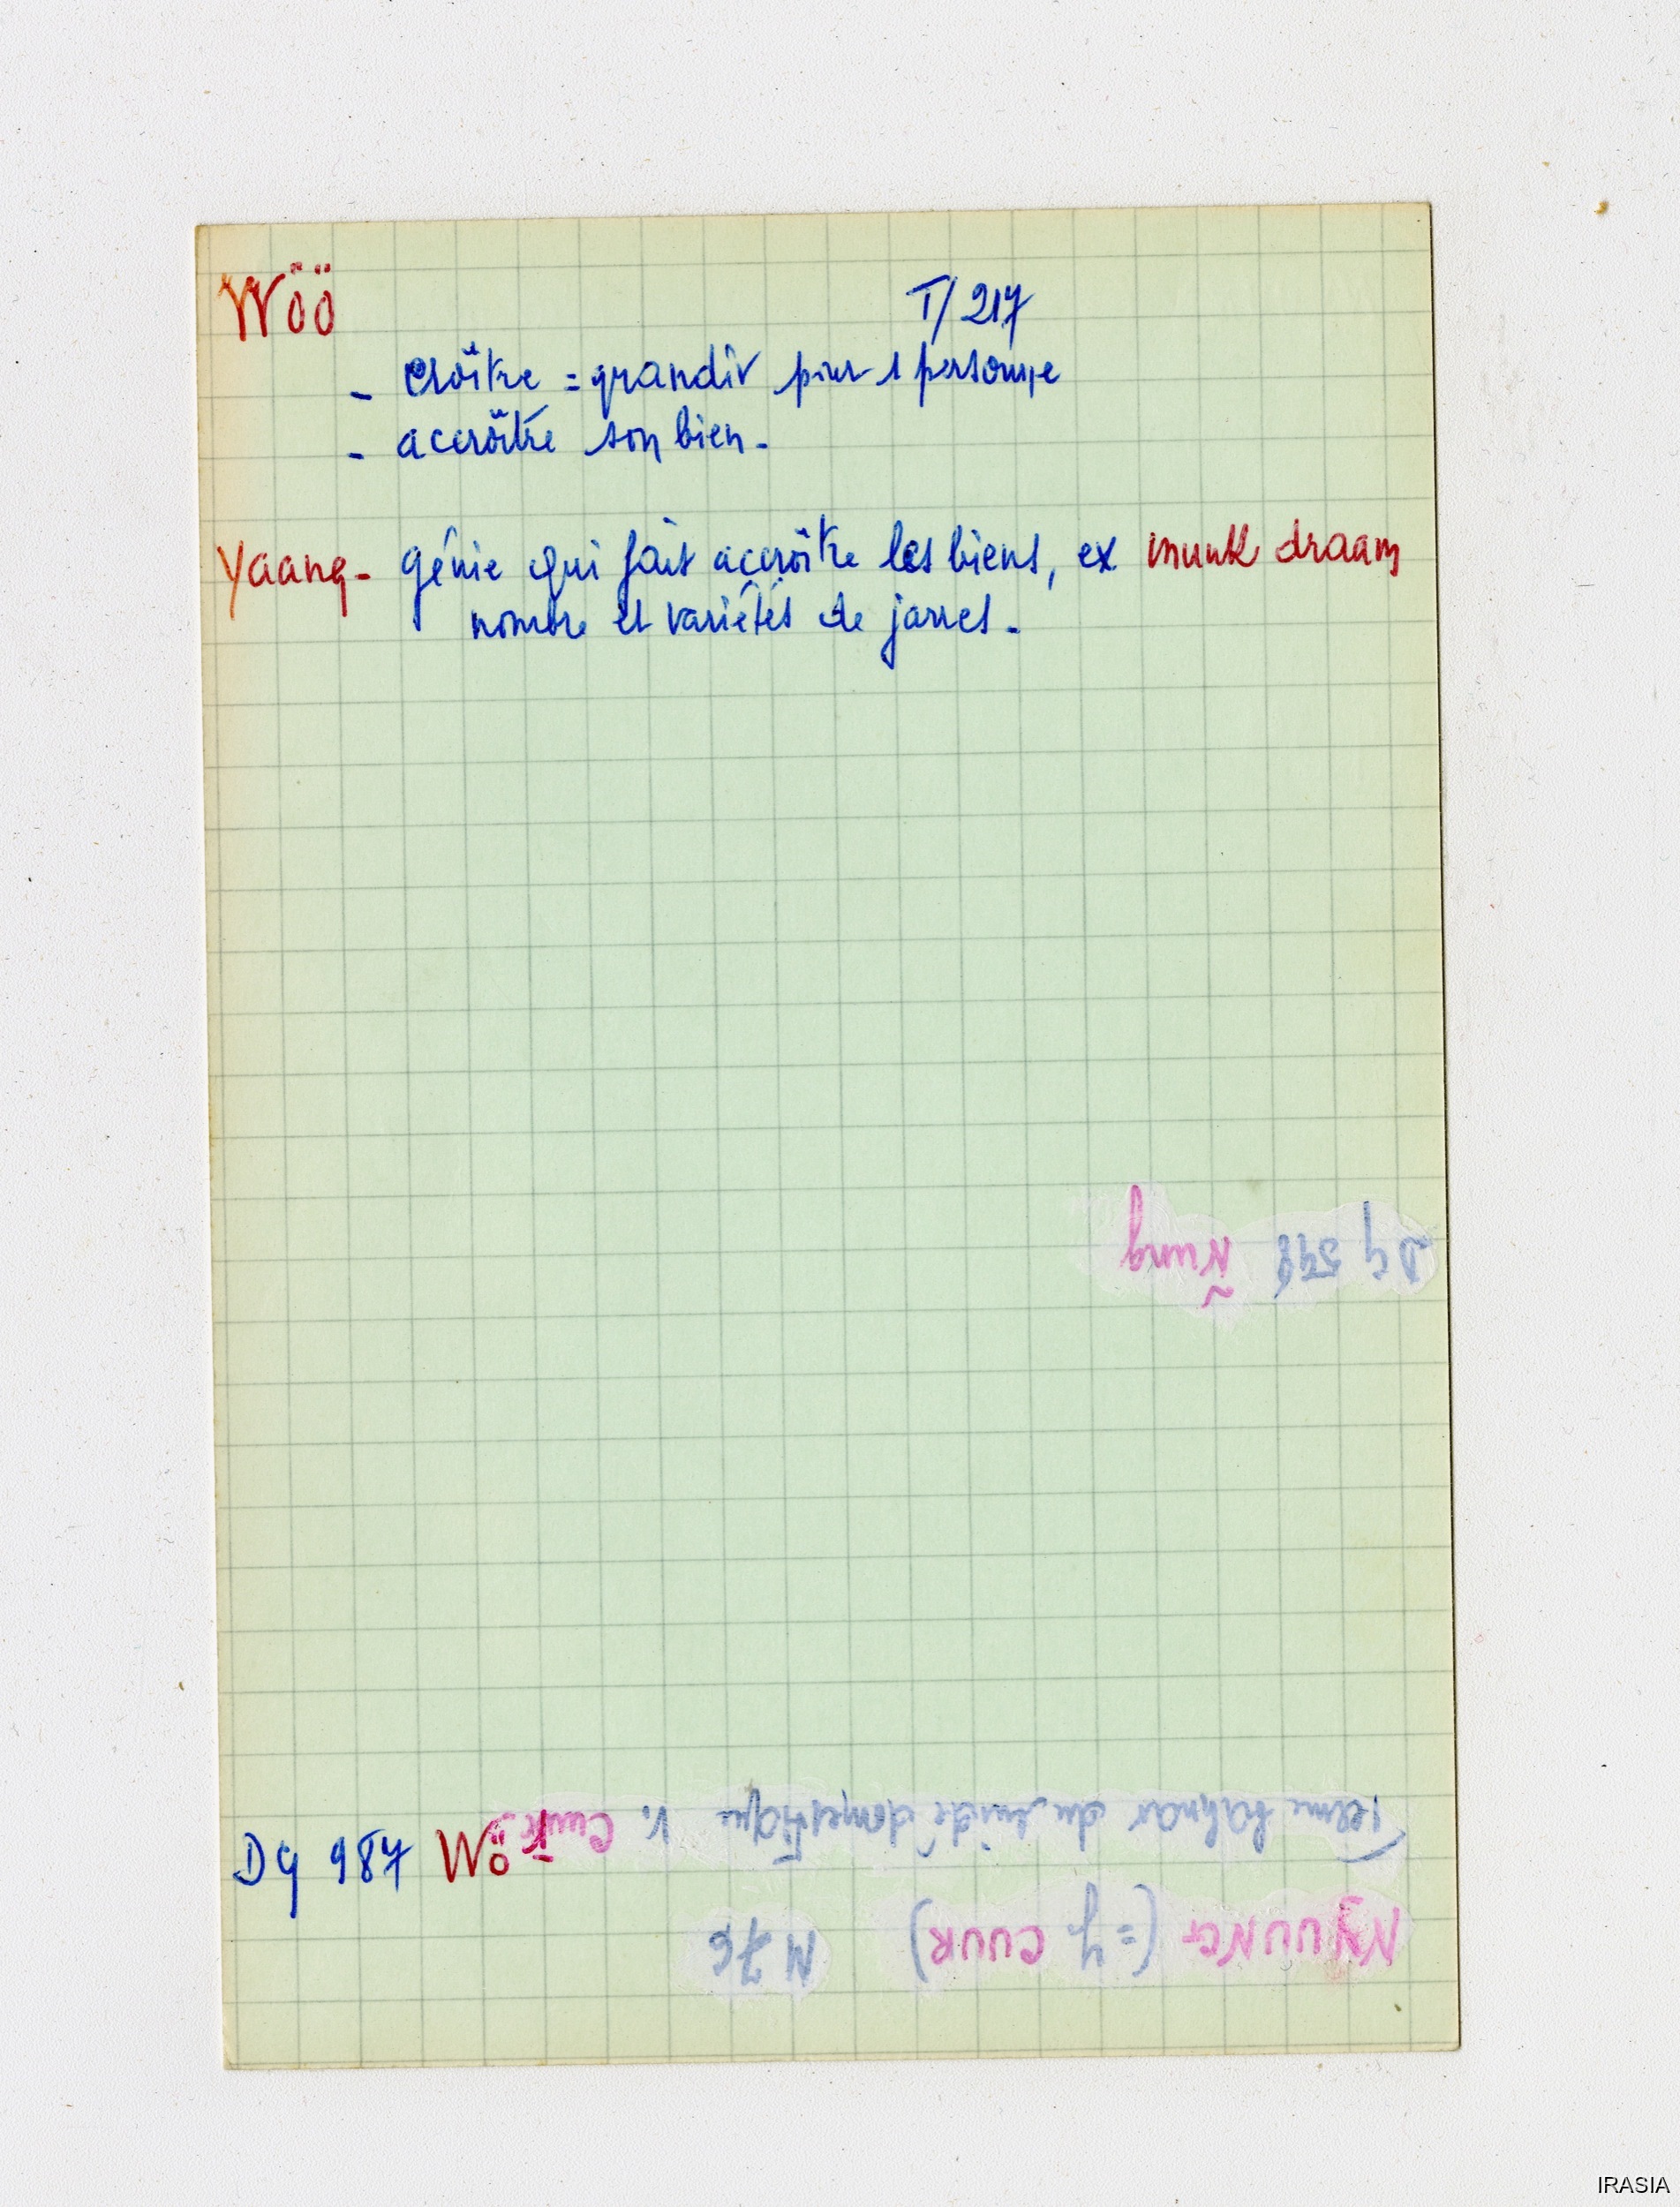 Wöö T/217
- croître = grandir pour 1 personne
- accroître son bien -
Yaang - génie qui fait accroître les biens, ex munk draam
nombre et variétés de jarres -
DG 598 Ñung
DG 987 Wö̆
NYUUNG (= y. CUUR) N 76
Terme bahnar du suidé domestique v.
IRASIA